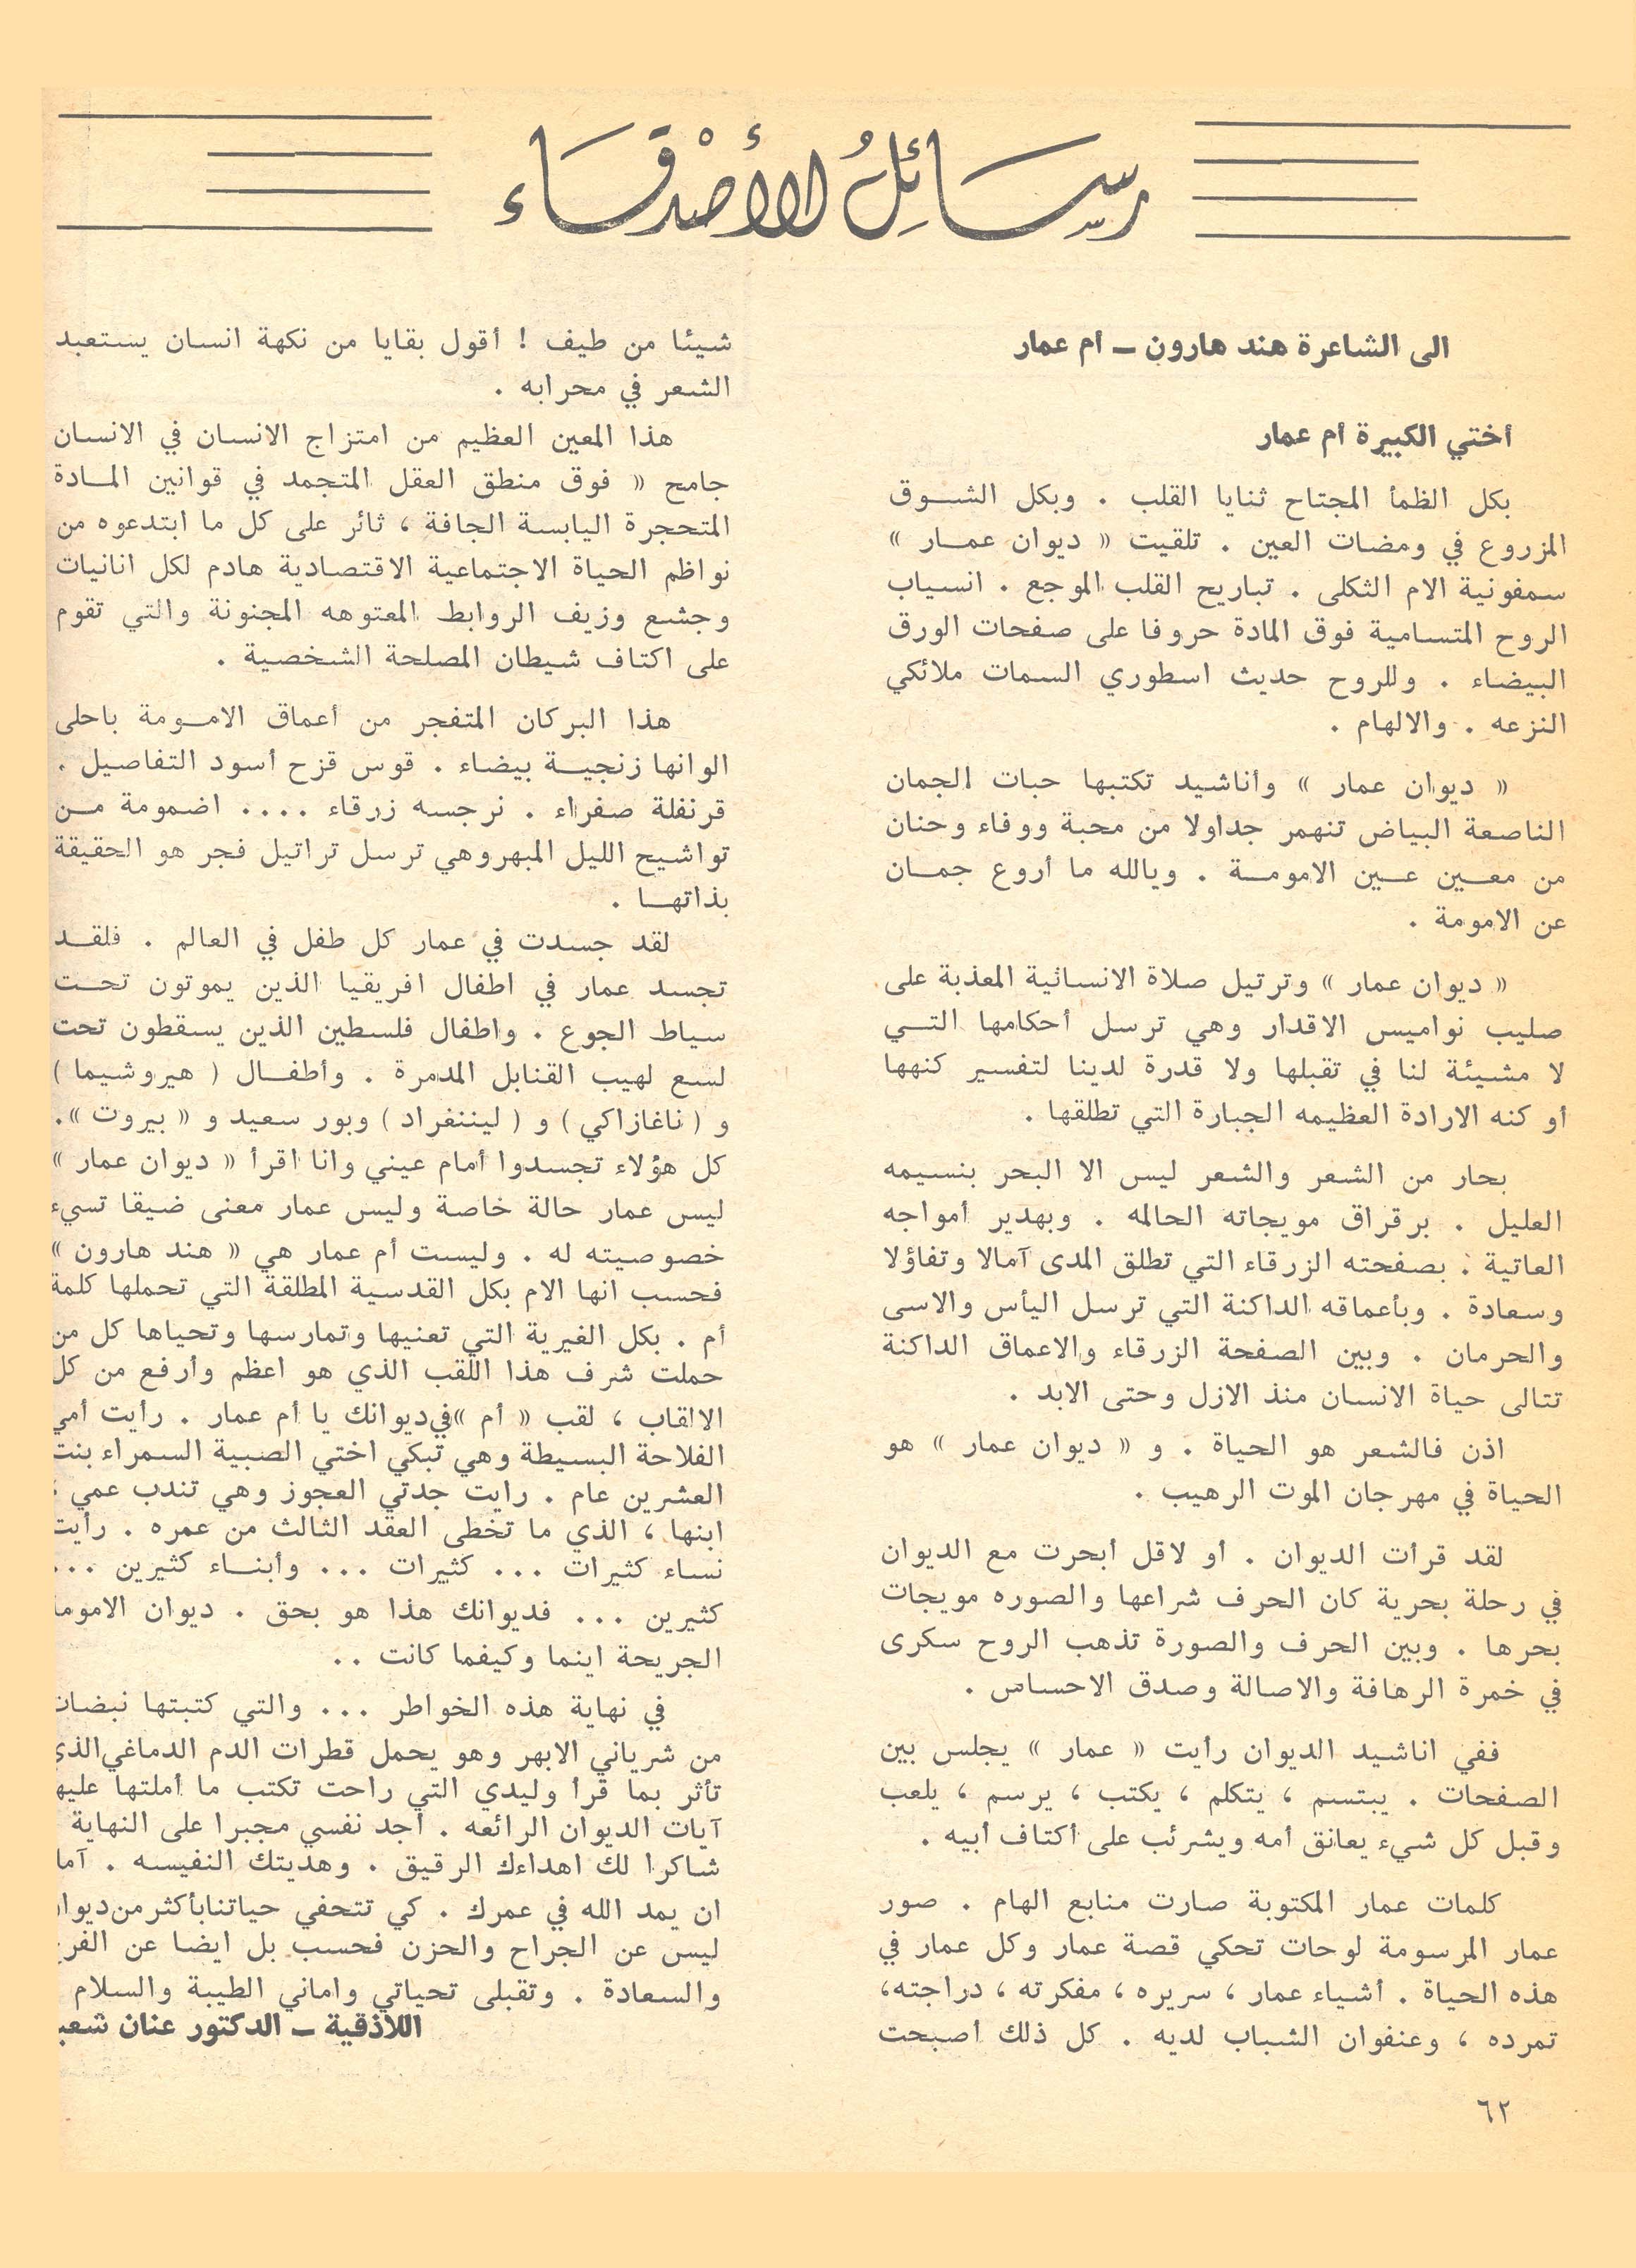 رسائل الأصدقاء
الى الشاعرة هند هارون ــ أم عمار
أختي الكبيرة أم عمار
بكل الظمأ المجتاح ثنايا القلب . وبكل الشـوق
المزروع في ومضات العين . تلقيت « ديوان عمـار »
سمفونية الام الثكلى . تباريح القلب الموجع . انسياب
الروح المتسامية فوق المادة حروفا على صفحات الورق
البيضاء . وللروح حديث اسطوري السمات ملائكي
النزعه . والالهام .
« ديوان عمار » وأناشيد تكتبها حبات الجمان
الناصعة البياض تنهمر جداولا من محبة ووفاء وحنان
من معـين عـين الامومـة . ويالله ما أروع جمـان
عن الامومة .
« ديوان عمار » وترتيل صلاة الانسانية المعذبة على
صليب نواميس الاقدار وهي ترسل أحكامها التـي
لا مشيئة لنا في تقبلها ولا قدرة لدينا لتفسير كنهها
أو كنه الارادة العظيمه الجبارة التي تطلقها .
بحار من الشعر والشعر ليس الا البحر بنسيمه
العليل . برقراق مويجاته الحالمه . وبهدير أمواجه
العاتية . بصفحته الزرقاء التي تطلق المدى آمالا وتفاؤلا
وسعادة . وبأعماقه الداكنة التي ترسل اليأس والاسى
والحرمان . وبين الصفحة الزرقاء والاعماق الداكنة
تتالى حياة الانسان منذ الازل وحتى الابد .
اذن فالشعر هو الحياة . و « ديوان عمار » هو
الحياة في مهرجان الموت الرهيب .
لقد قرأت الديوان . أو لاقل أبحرت مع الديوان
في رحلة بحرية كان الحرف شراعها والصوره مويجات
بحرها . وبين الحرف والصورة تذهب الروح سكرى
في خمرة الرهافة والاصالة وصدق الاحساس .
ففي اناشيد الديوان رأيت « عمار » يجلس بين
الصفحات . يبتسم ، يتكلم ، يكتب ، يرسم ، يلعب
وقبل كل شيء يعانق أمه ويشرئب على أكتاف أبيه .
كلمات عمار المكتوبة صارت منابع الهام . صور
عمار المرسومة لوحات تحكي قصة عمار وكل عمار في
هذه الحياة . أشياء عمار ، سريره ، مفكرته ، دراجته،
تمرده ، وعنفوان الشباب لديه . كل ذلك أصبحت
شيئا من طيف ! أقول بقايا من نكهة انسان يستعبد
الشعر في محرابه .
هذا المعين العظيم من امتزاج الانسان في الانسان
جامح « فوق منطق العقل المتجمد في قوانين المـادة
المتحجرة اليابسة الجافة ، ثائر على كل ما ابتدعوه من
نواظم الحياة الاجتماعية الاقتصادية هادم لكل انانيات
وجشع وزيف الروابط المعتوهه المجنونة والتي تقوم
على اكتاف شيطان المصلحة الشخصية .
هذا البركان المتفجر من أعماق الامـومة باحلى
الوانها زنجيـة بيضاء . قوس قزح أسود التفاصيل .
قرنفلة صفراء . نرجسه زرقاء .... اضمومة مـن
تواشيح الليل المبهروهي ترسل تراتيل فجر هو الحقيقة
بذاتهـا .
لقد جسدت في عمار كل طفل في العالم . فلقـد
تجسد عمار في اطفال افريقيا الذين يموتون تحـت
سياط الجوع . واطفال فلسطين الذين يسقطون تحت
لسع لهيب القنابل المدمرة . وأطفـال ( هيروشيما )
و ( ناغازاكي ) و ( ليننغراد ) وبور سعيد و « بيروت ».
كل هؤلاء تجسدوا أمام عيني وانا اقرأ « ديوان عمار »
ليس عمار حالة خاصة وليس عمار معنى ضيقا تسيء
خصوصيته له . وليست أم عمار هي « هند هارون »
فحسب انها الام بكل القدسية المطلقة التي تحملها كلمة
أم . بكل الغيرية التي تعنيها وتمارسها وتحياها كل من
حملت شرف هذا اللقب الذي هو اعظم وأرفع من كل
الالقاب ، لقب « أم »في‌ديوانك يا أم عمار . رأيت أمي
الفلاحة البسيطة وهي تبكي اختي الصبية السمراء بنت
العشرين عام . رايت جدتي العجوز وهي تندب عمي
ابنها ، الذي ما تخطى العقد الثالث من عمره . رأيت
نساء كثيرات ... كثيرات ... وأبنـاء كثيرين ...
كثيرين ... فديوانك هذا هو بحق . ديوان الاموم
الجريحة اينما وكيفما كانت ..
في نهاية هذه الخواطر ... والتي كتبتها نبضات
من شرياني الابهر وهو يحمل قطرات الدم الدماغي‌الذي
تأثر بما قرأ وليدي التي راحت تكتب ما أملتها عليه
آيات الديوان الرائعه . أجد نفسي مجبرا على النهاية
شاكرا لك اهداءك الرقيق . وهديتك النفيسه . آما
ان يمد الله في عمرك . كي تتحفي حياتنابأكثرمن‌ديوا
ليس عن الجراح والحزن فحسب بل ايضا عن الفر
والسعادة . وتقبلى تحياتي واماني الطيبة والسلام
اللاذقية ــ الدكتور عنان شعب
٦٢